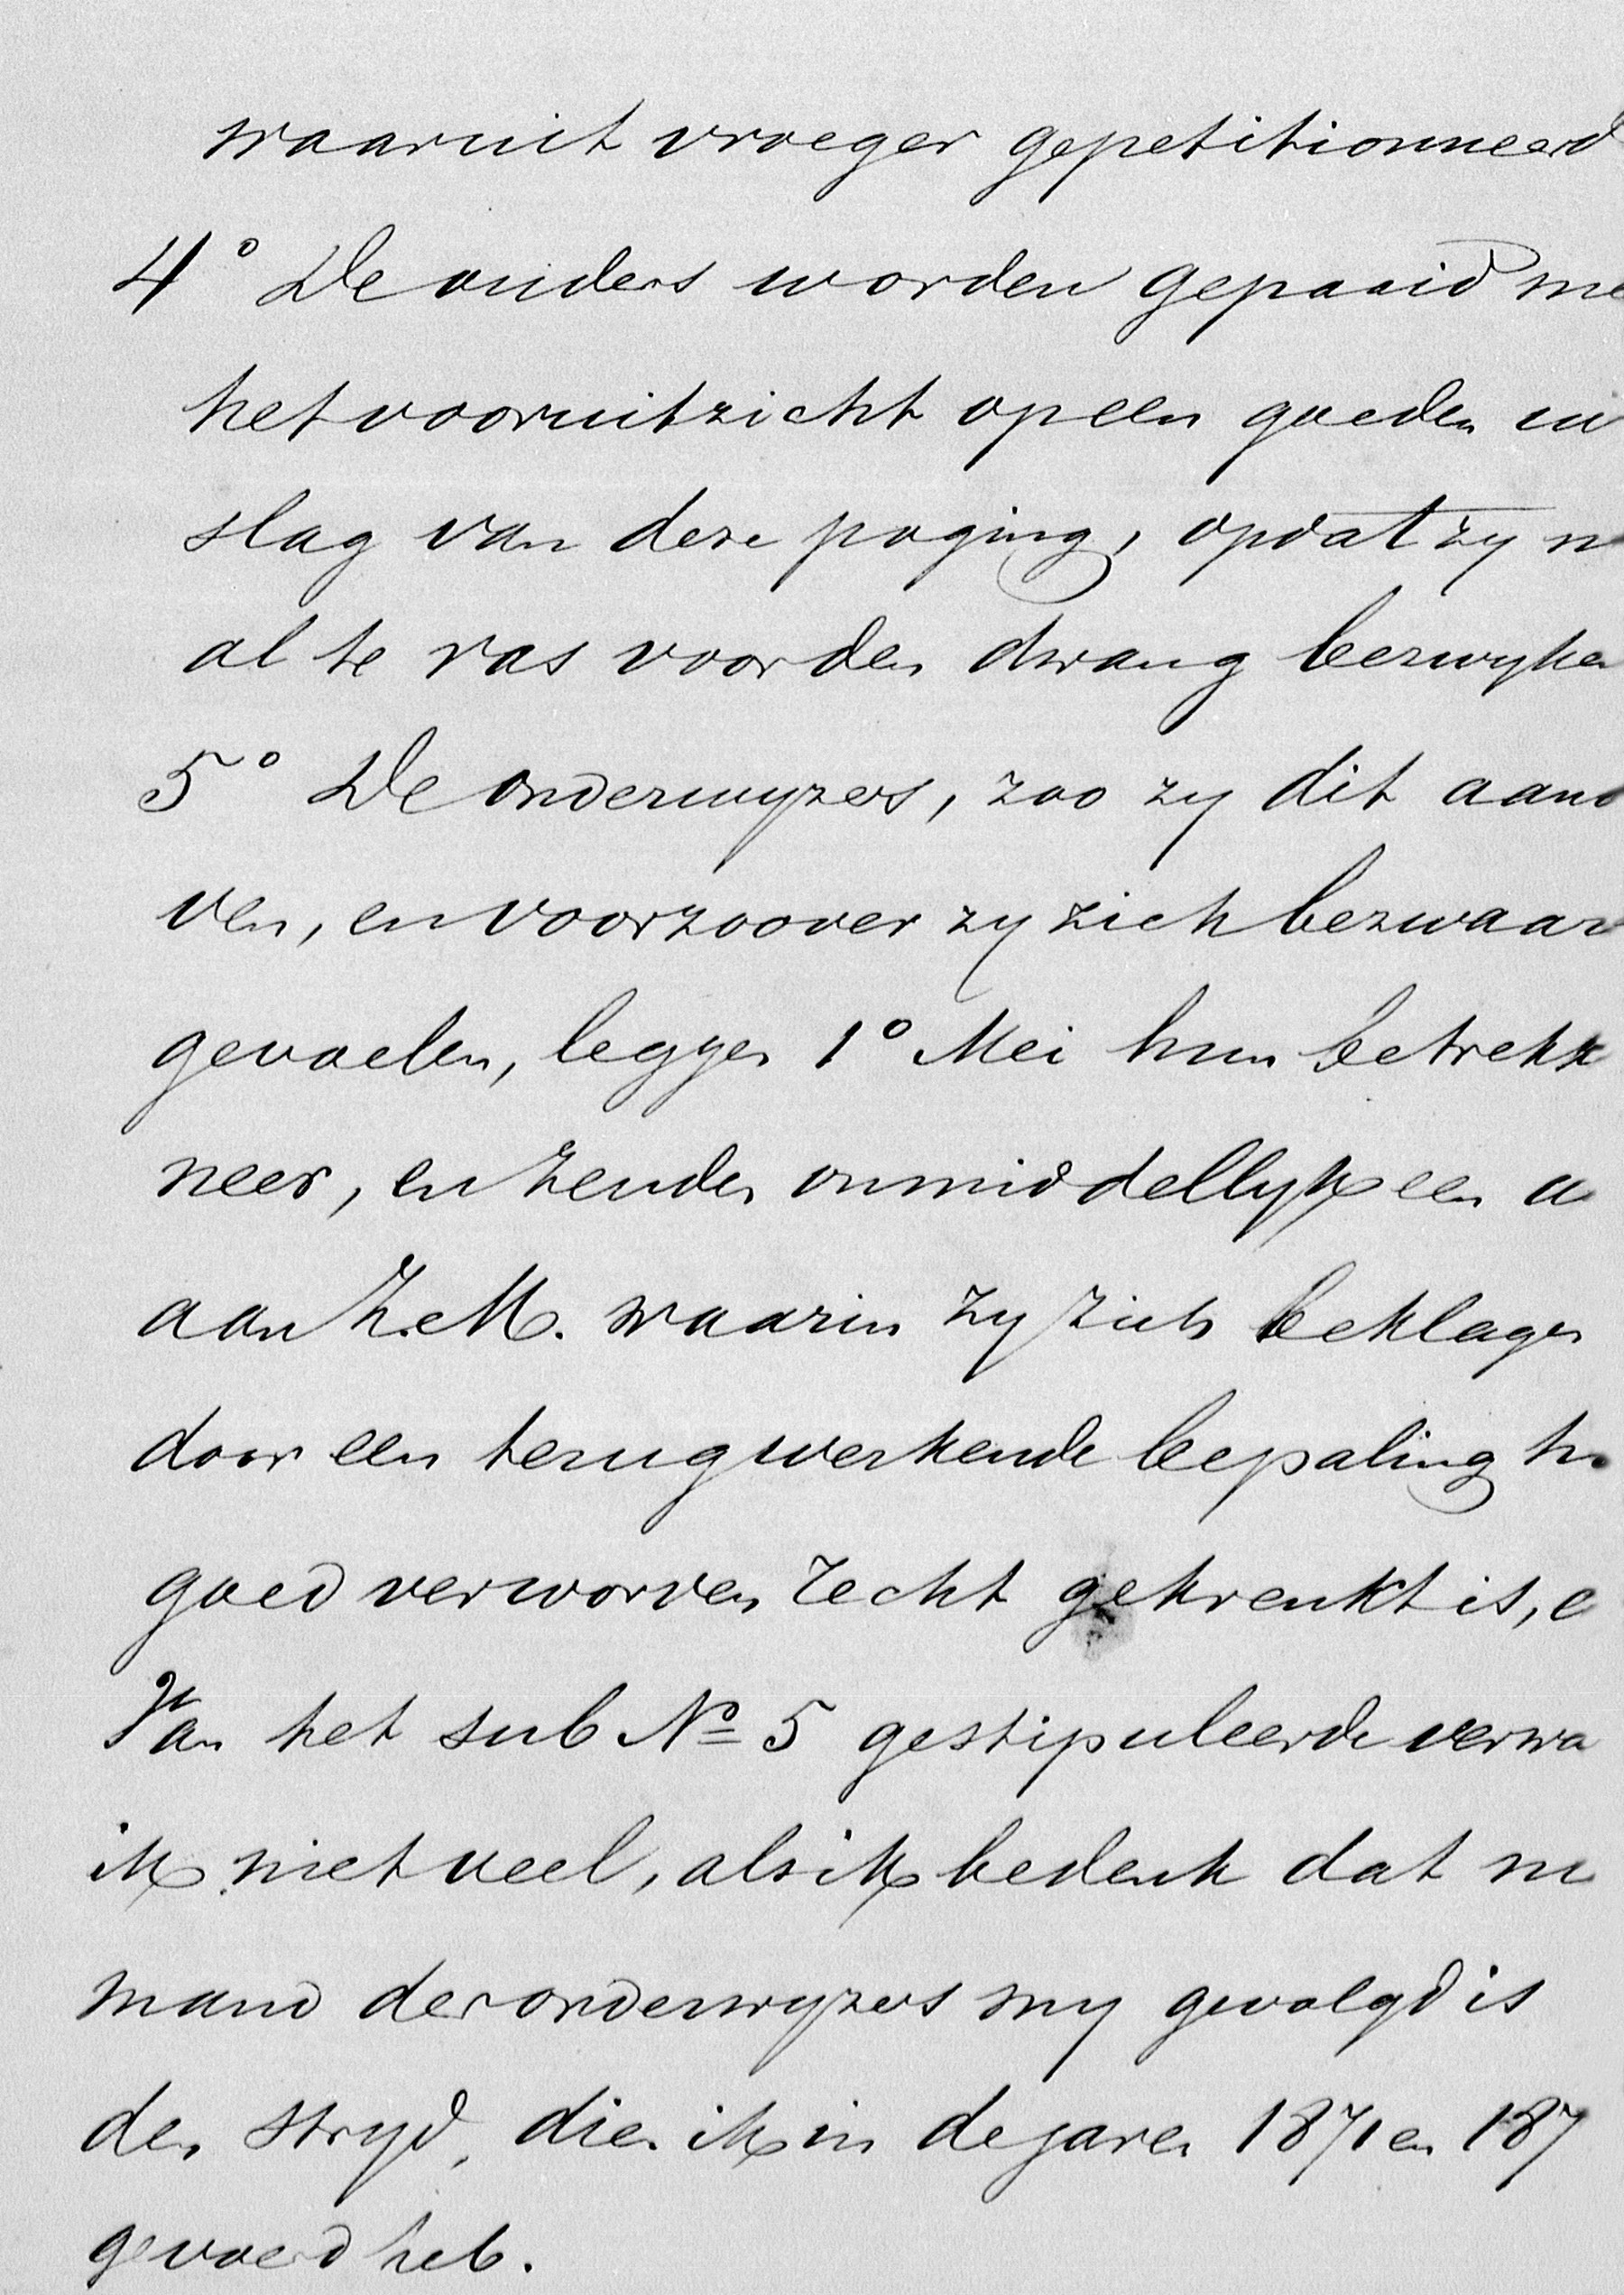 waaruit vroeger gepetitionneerd
4° De ouders worden gepaaid me
het vooruitzicht op een goeden uit
slag van deze poging, opdat zy n
al te ras voor den dwang bezwyken
5° De onderwyzers, zoo zy dit aand
ven, en voorzoover zy zich bezwaar
gevoelen, leggen 1° Mei hun betrekk
neer, en zenden onmiddellyk een a
aan Z.M. waarin zy zich beklagen
door een terugwerkende bepaling h
goed verworven recht gekrenkt is, e
Van het sub No 5 gestipuleerde verwa
ik niet veel, als ik bedenk dat nie
mand der onderwyzers my gevolgd is
den stryd, dien ik in de jaren 1871 en 187
gevoerd heb.